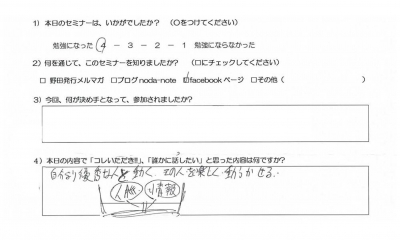 1) 本日のセミナーは、いかがでしたか? (○をつけてください)
勉強になった 4 － 3 － 2 － 1 勉強にならなかった
2) 何を通じて、このセミナーを知りましたか? (□にチェックしてください)
□ 野田発行メルマガ □ブログnoda-note ☑facebookページ □その他 ( )
3) 今回、何が決め手となって、参加されましたか?
4) 本日の内容で「コレいただき!!」、「誰かに話したい」と思った内容は何ですか?
自分より優秀な人を動く、 人を楽しく動かせる。
人脈 情報